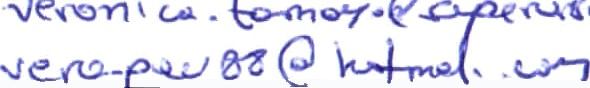 veronica.tamayo@supervis
vera-pau88@hotmail.com